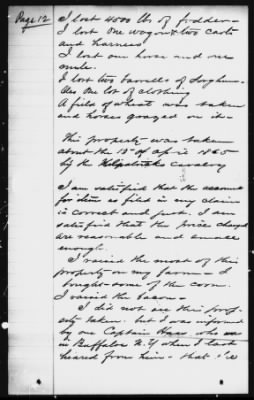 Page 12
I lost 4500 lbs of fodder—
I lost one wagon & two carts
and harness
I lost one horse and one
mule.
I lost two barrells of Sorghum—
Also One lot of clothing
A field of wheat was taken
and horses grazed on it—
This property was taken
about the 13th of april 1865
by the Kilpatricks cavalry
I am satisfied that the account
for item as filed in my claim
is correct and just. I am
satisfied that the prices charged
are reasonable and small
enough.
I raised the most of this
property on my farm— I
bought some of the corn.
I raised the bacon—
I did not see this prop-
erty taken. but I was informed
by one Captain who was
in Buffalo N.Y when I last
heared from him— that he